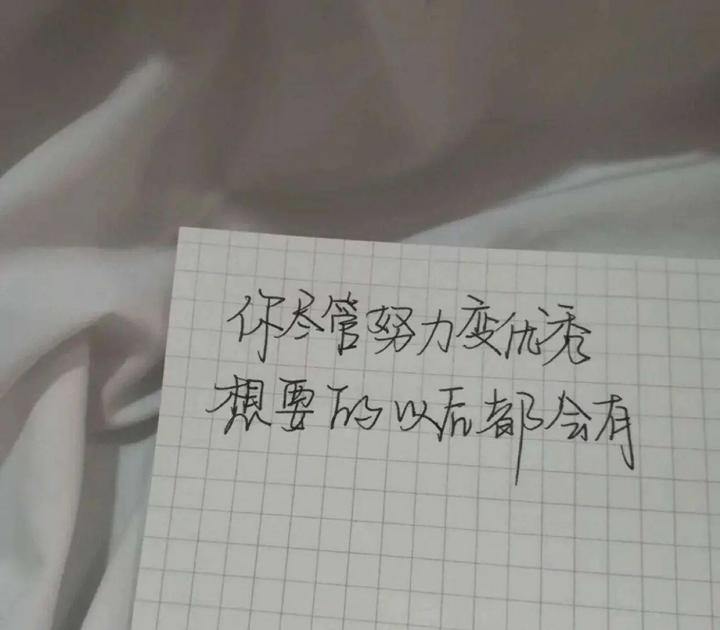 你尽管努力变优秀
想要的以后都会有